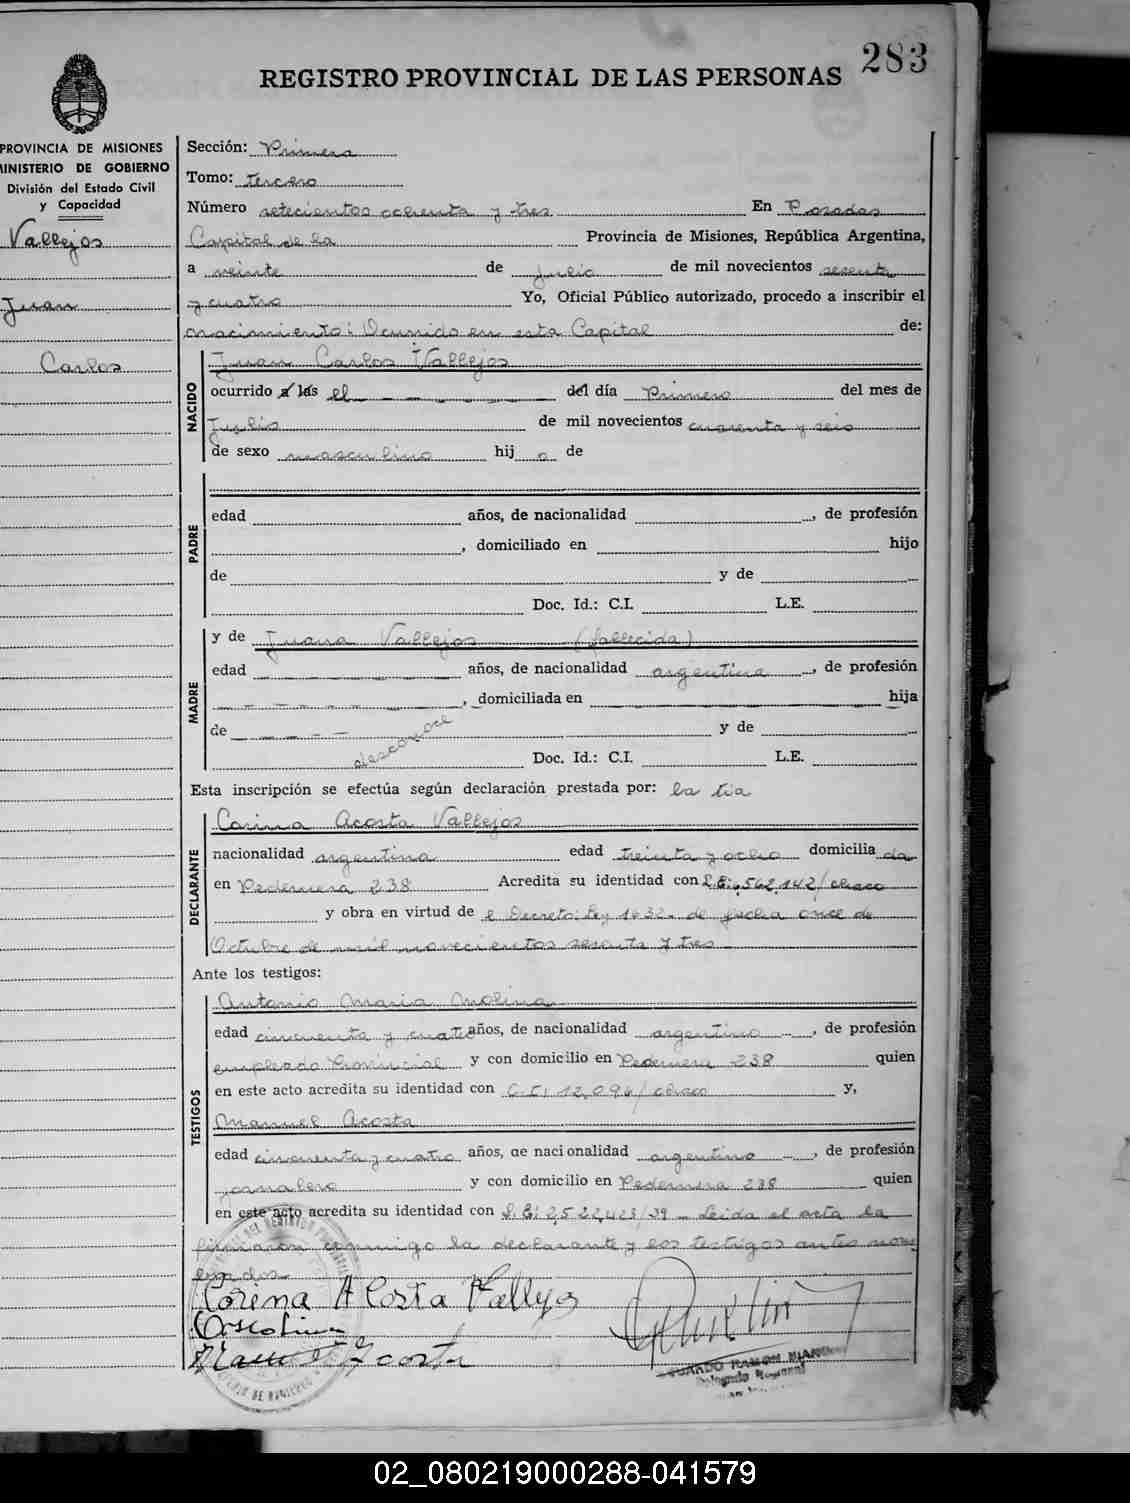 283
REGISTRO PROVINCIAL DE LAS PERSONAS
PROVINCIA DE MISIONES
MINISTERIO DE GOBIERNO
División del Estado Civil
y Capacidad
Vallejos
Juan
Carlos
Sección: Primera
Tomo: tercero
Número setecientos ochenta y tres En Posadas
Capital de la Provincia de Misiones, República Argentina,
a veinte de julio de mil novecientos sesenta
y cuatro Yo, Oficial Público autorizado, procedo a inscribir el
nacimiento: Ocurrido en esta Capital de:
NACIDO
Juan Carlos Vallejos
ocurrido a las el del día Primero del mes de
Julio de mil novecientos cuarenta y seis
de sexo masculino hij o de
PADRE
edad años, de nacionalidad , de profesión
, domiciliado en hijo
de y de
Doc. Id.: C.I. L.E.
MADRE
y de Juana Vallejos (fallecida)
edad años, de nacionalidad argentina , de profesión
, domiciliada en hija
de desconoce y de
Doc. Id.: C.I. L.E.
Esta inscripción se efectúa según declaración prestada por: la tia
DECLARANTE
Corina Acosta Vallejos
nacionalidad argentina edad treinta y ocho domicilia da
en Pedernera 238 Acredita su identidad con 562.142/chaco
y obra en virtud de l Decreto: Ley 1632 - de fecha once de
Octubre de mil novecientos sesenta y tres
Ante los testigos:
TESTIGOS
Antonio Maria Molina
edad cincuenta y cuatro años, de nacionalidad argentino , de profesión
empleado Provincial y con domicilio en Pedernera 238 quien
en este acto acredita su identidad con C.I: 12.094/chaco y,
Manuel Acosta
edad cincuenta y cuatro años, de nacionalidad argentino , de profesión
jornalero y con domicilio en Pedernera 238 quien
en este acto acredita su identidad con L.E: 2.522.423/39 - Leida el acta la
firmaron conmigo la declarante y los testigos antes nom
Corina Acosta Vallejos
Manuel Acosta
EDUARDO RAMON
02_080219000288-041579